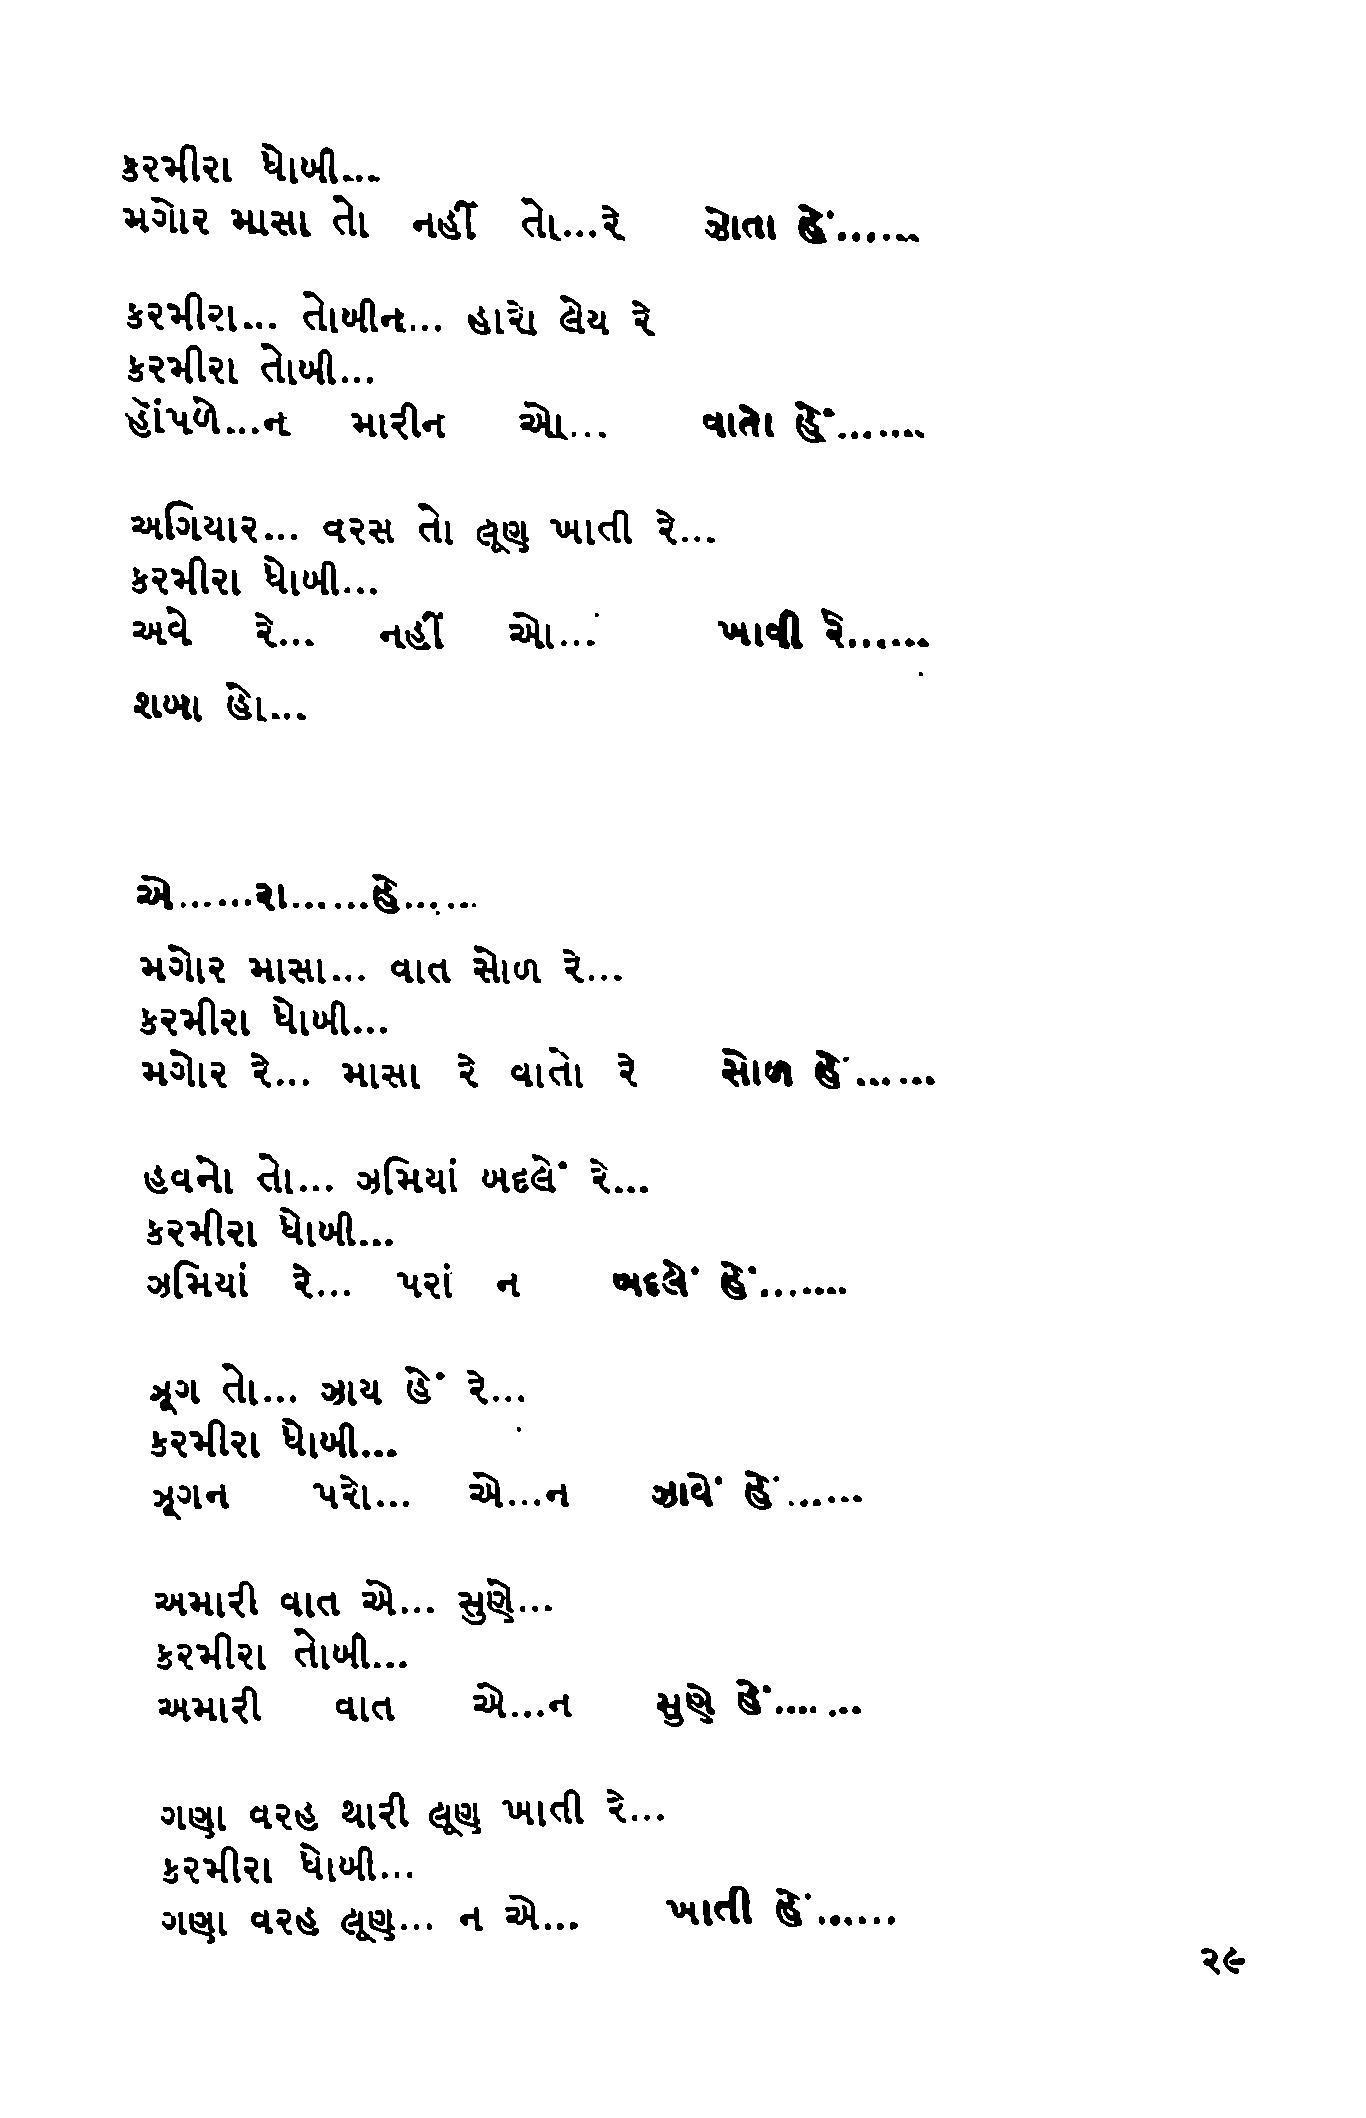 કરમીરા ધોબી...
મગોર માસા તો નહીં તો...રે ઝોતા હેં......
કરમીરા... તોબીન... હારો લેય રે
કરમીરા તોબી...
હૉંપળે...ન મારીન ઓ... વાતો હેં.......
અગિયાર... વરસ તો લૂણ ખાતી રે...
કરમીરા ધોબી...
અવે રે... નહીં ઓ... ખાવી રે......
શબા હો...
એ......રા......હે......
મગોર માસા... વાત સોળ રે...
કરમીરા ધોબી...
મગોર રે... માસા રે વાતો રે સોળ હેં......
હવનો તો... ઝમિયાં બદલેં રે...
કરમીરા ધોબી...
ઝમિયાં રે... પરાં ન બદલેં હેં.......
ઝૂગ તો... ઝાય હેં રે...
કરમીરા ધોબી...
ઝૂગન પરો... એ...ન ઝાવેં હેં......
અમારી વાત એ... સુણે...
કરમીરા તોબી...
અમારી વાત એ...ન સુણે હેં.......
ગણા વરહ થારી લૂણ ખાતી રે...
કરમીરા ધોબી...
ગણા વરહ લૂણ... ન એ... ખાતી હેં......
૨૯